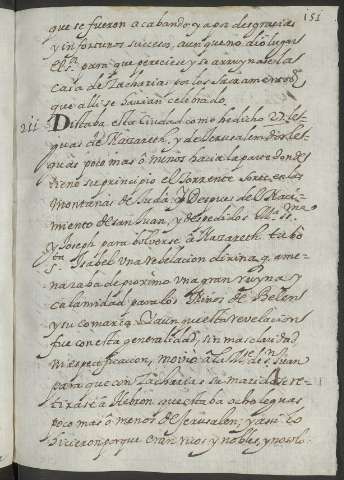 151
que se fueron acabando, y a por desgracias
y infortunos sucesos, aunque no dio lugar
el Sr. para que pereciese y se arruynase la
casa de Zacharias por los Sacramentos
que alli se havian celebrado.
Distava esta Ciudad como he dicho 27 leguas
de Nazareth, y de Jerusalem dos leguas
poco mas ó menos hacia la parte donde
tiene su principio el torrente Sorec en las
Montañas de Judá. Y Despues del Nacimiento
de San Juan, y despedidos Maria SS.ma
y Joseph para bolverse a Nazareth tubo
S.ta Isabel una revelacion divina q. amenazaba
de proximo una gran ruyna y
calamidad para los Niños de Belen
y su comarca. Y aunque esta revelacion
fue con esta generalidad, sin mas claridad
ni especificacion, movió a la M.e de S.n Juan
para que con Zacharias su marido se retirase
a Hebron que estaba ocho leguas
poco mas ó menos de Jerusalen; y asi lo
hicieron porque eran ricos y nobles, y no solo